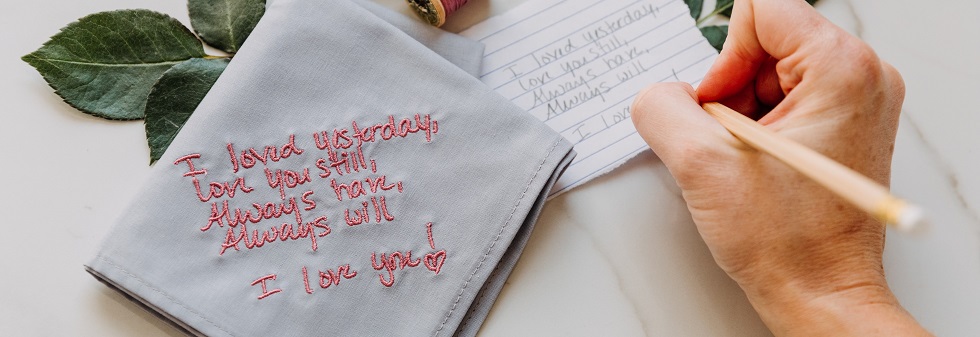 I loved yesterday,
Love you still,
Always have,
Always will
I love you!♡
I loved yesterday,
Love you still,
Always have,
Always will
I love